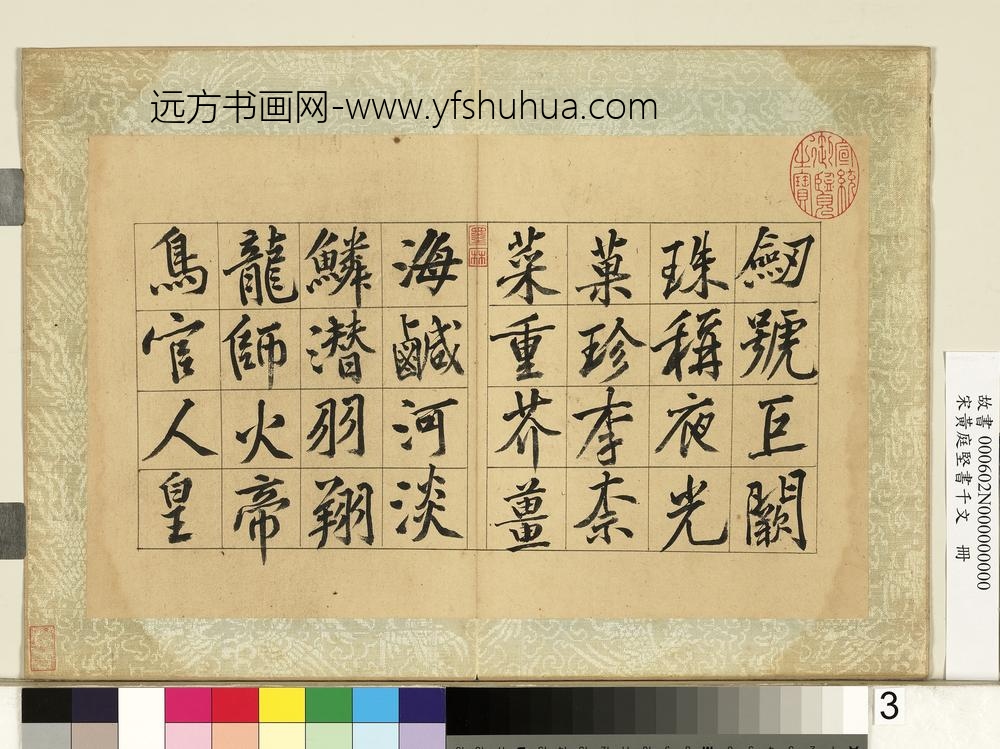 远方书画网-www.yfshuhua.com
宣統御覽之寶
劒號巨闕
珠稱夜光
菓珍李柰
菜重芥薑
海鹹河淡
鱗潛羽翔
龍師火帝
鳥官人皇
故書 000602N000000000
宋黃庭堅書千文 冊
3